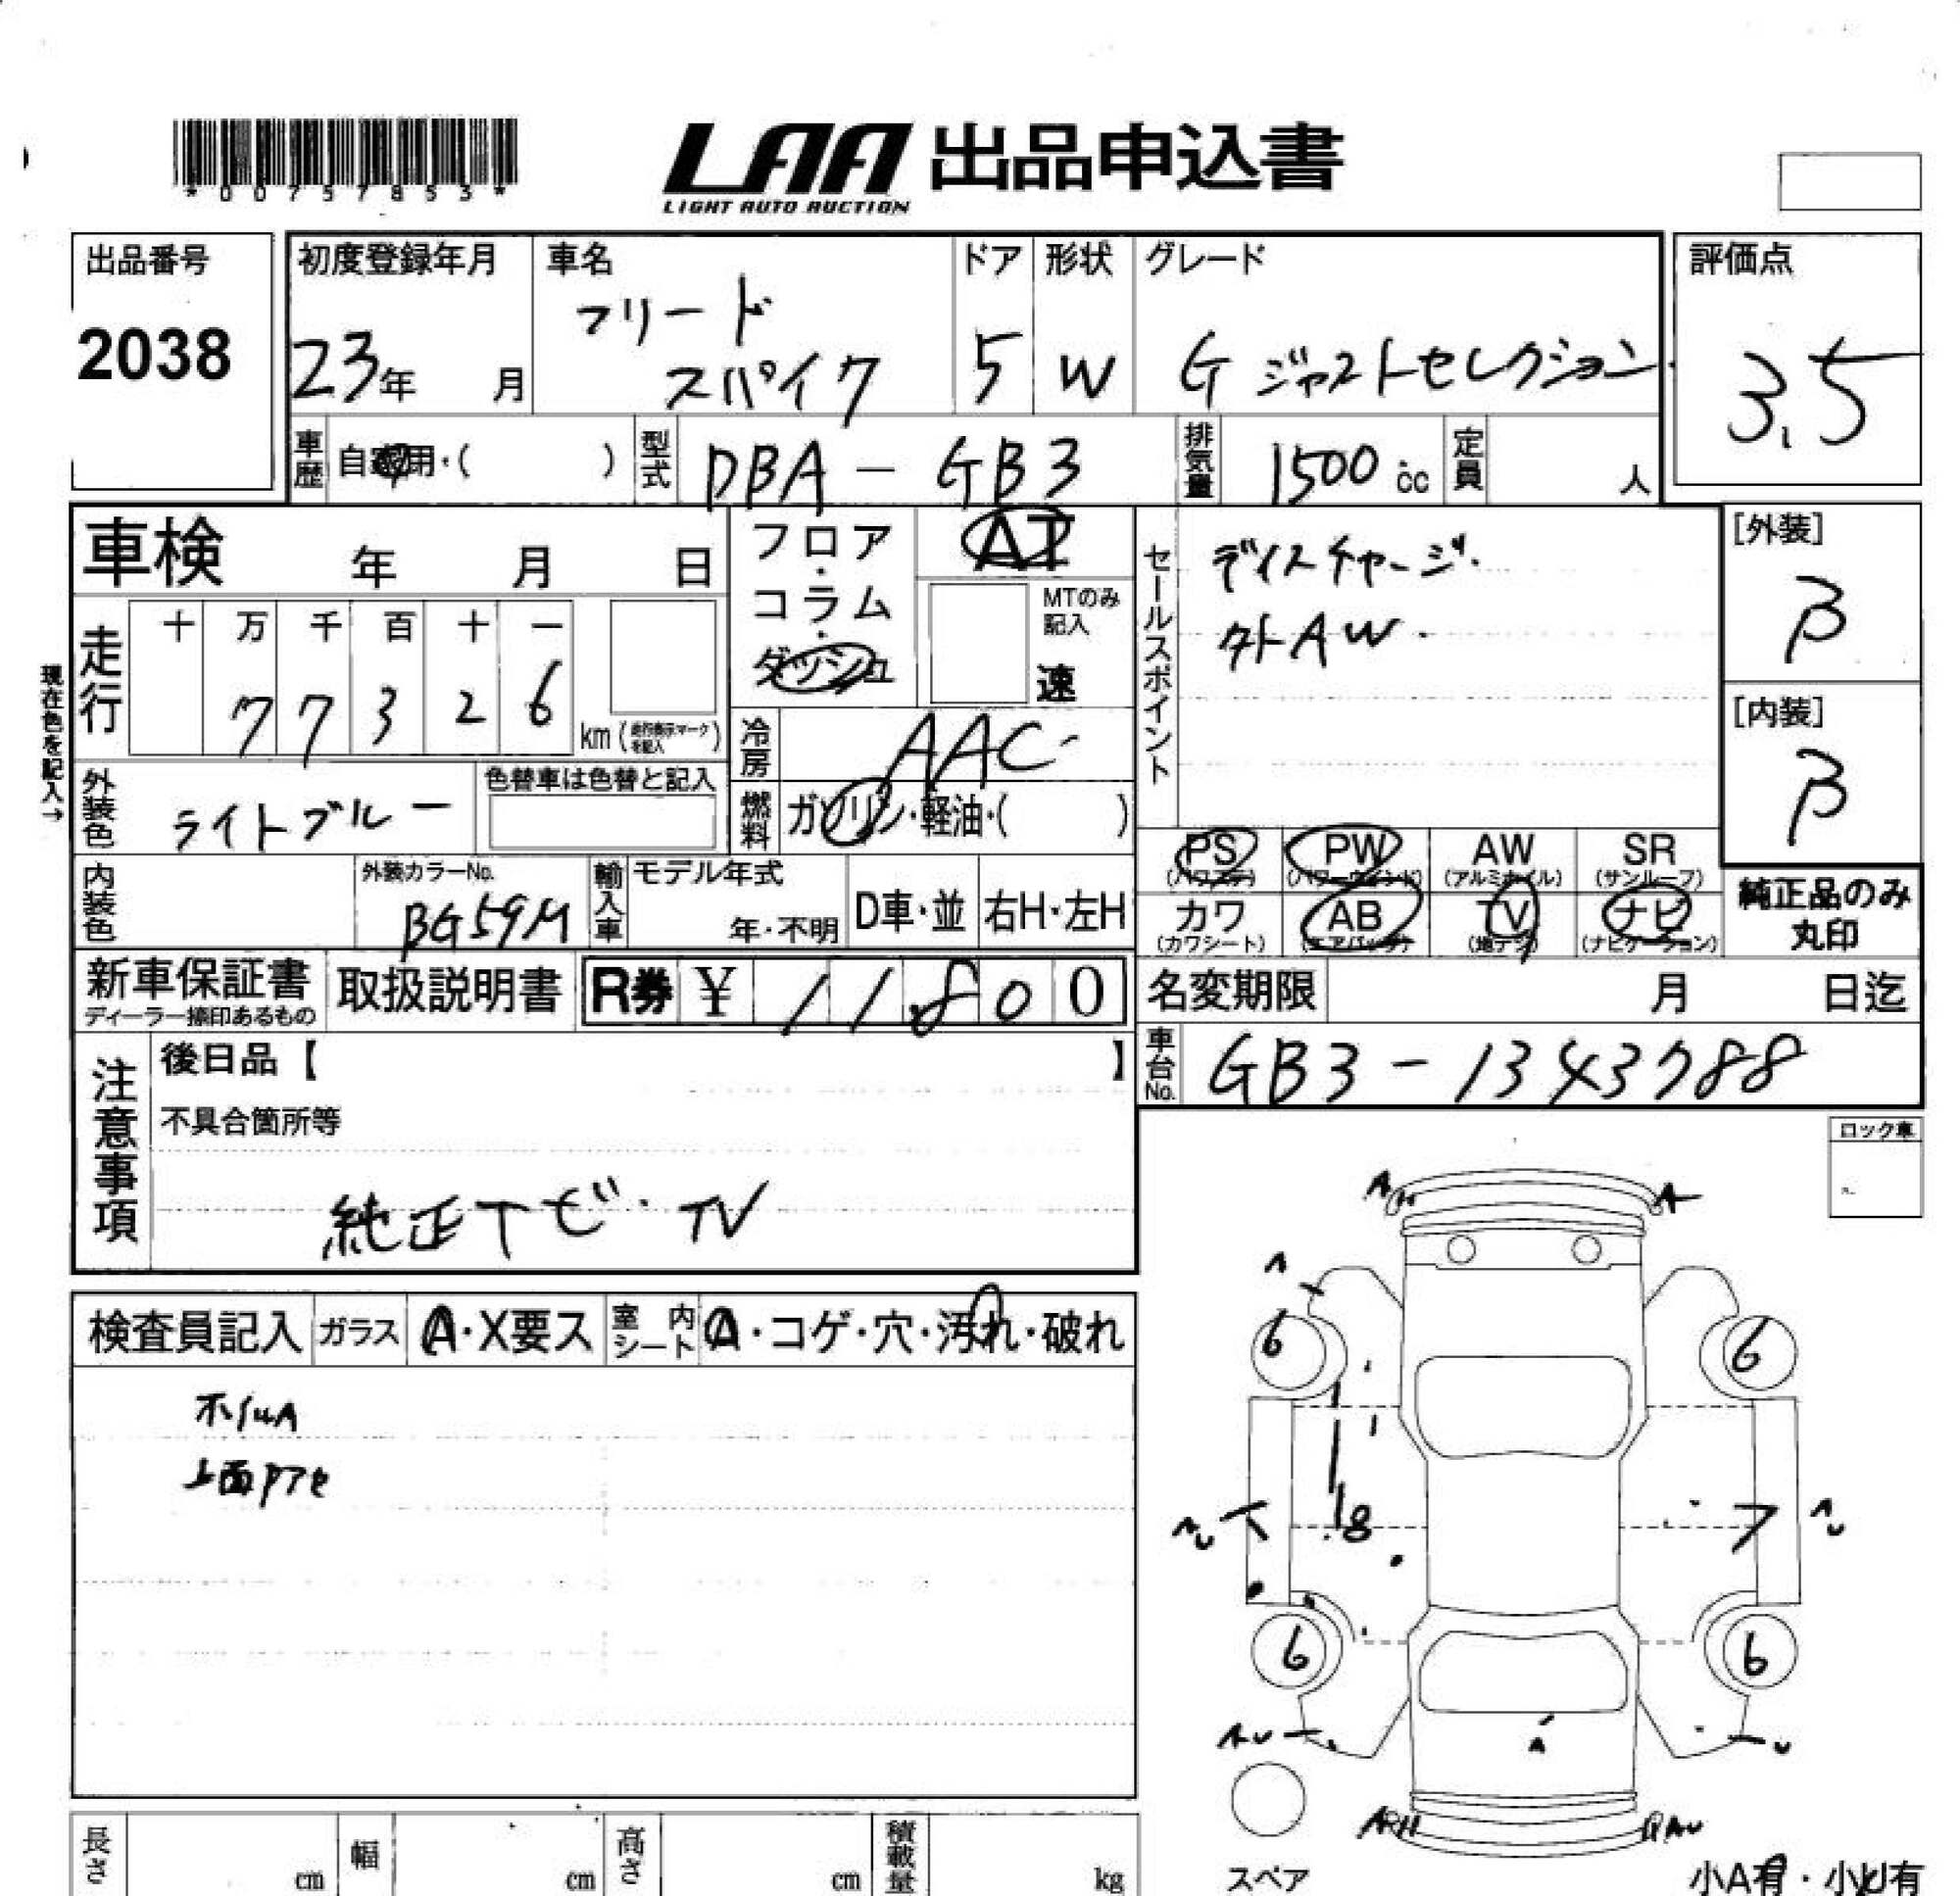 *00757853*
LAA 出品申込書
LIGHT AUTO AUCTION
出品番号
2038
初度登録年月
23年 月
車名
フリード
スパイク
ドア
5
形状
W
グレード
G ジャストセレクション
評価点
3.5
車歴
自家用・( )
型式
DBA-GB3
排気量
1500 cc
定員
人
車検 年 月 日
フロア・コラム・ダッシュ
AT
MTのみ記入
速
セールスポイント
ディスチャージ.
外AW.
[外装]
B
[内装]
B
現在色を記入→
走行
十 万 千 百 十 一
7 7 3 2 6
km (走行表示マークを記入)
冷房
AAC
燃料
ガソリン・軽油・( )
外装色
ライトブルー
色替車は色替と記入
内装色
外装カラーNo.
BG59M
輸入車
モデル年式
年・不明
D車・並
右H・左H
PS (パワステ)
PW (パワーウインド)
AW (アルミホイル)
SR (サンルーフ)
カワ (カワシート)
AB (エアバック)
TV (地デジ)
ナビ (ナビゲーション)
純正品のみ
丸印
新車保証書
ディーラー捺印あるもの
取扱説明書
R券 ¥ 11,800
名変期限 月 日迄
車台No.
GB3-1343788
注意事項
後日品【 】
不具合箇所等
純正ナビ・TV
ロック車
検査員記入
ガラス
A・X要ス
室内シート
A・コゲ・穴・汚れ・破れ
ホイルA
上面ｱｱｾ
A A
A
6 6
8
6 6
AU U
A
スペア
小A有・小U有
長さ cm
幅 cm
高さ cm
積載量 kg